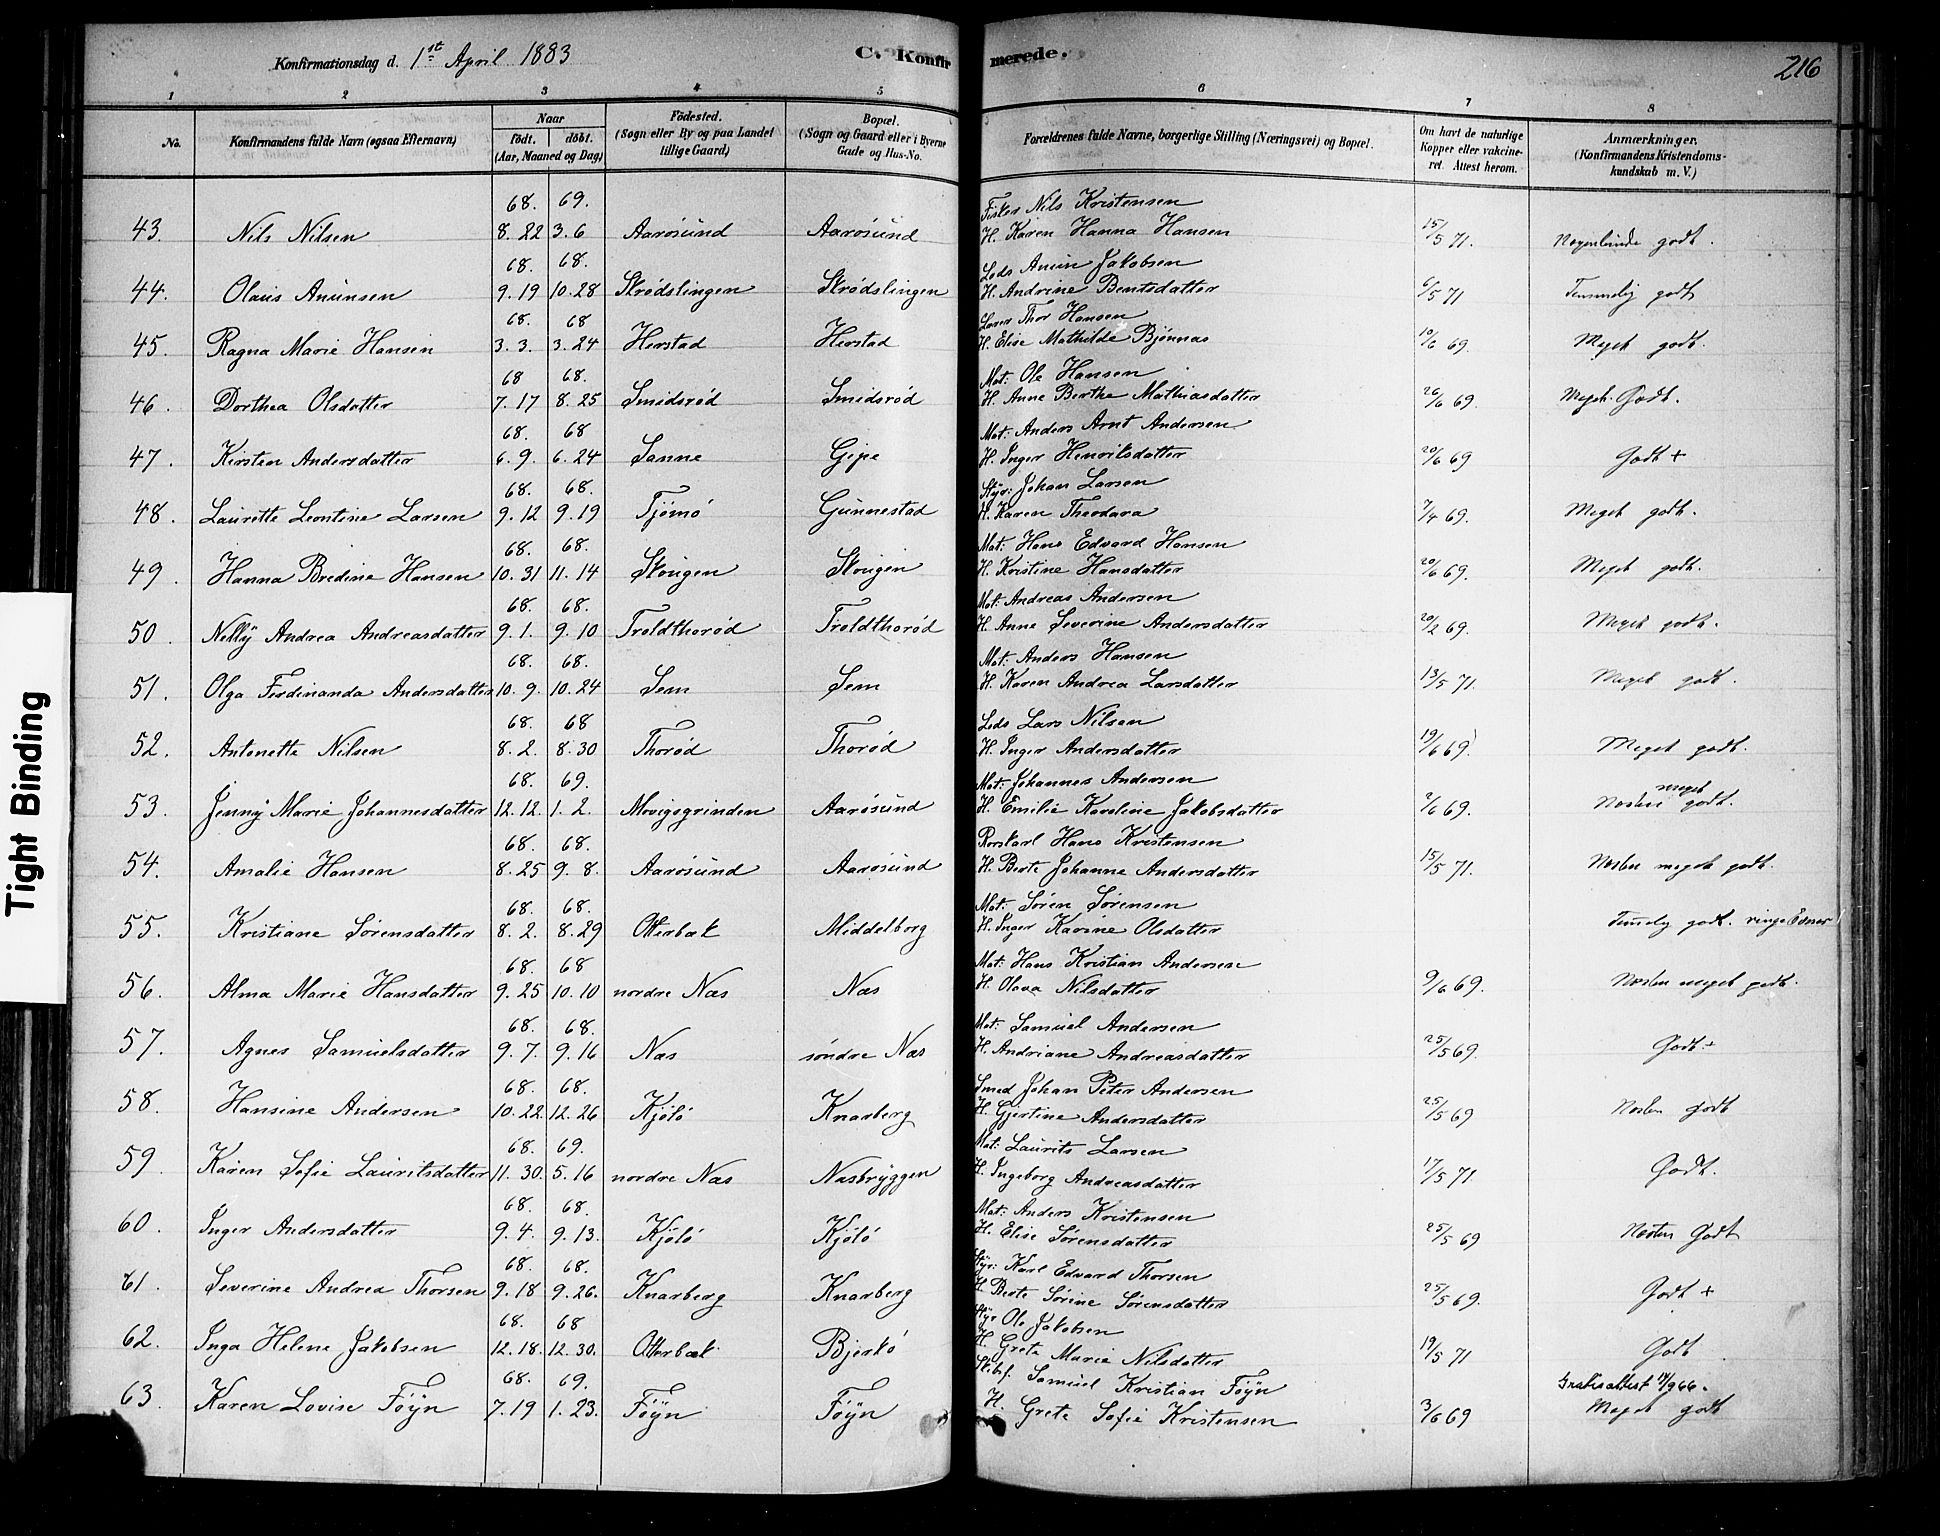 Konfirmationsdag d. 1st April 1883
C. Konfirmerede.
216
1 2 3 4 5 6 7 8
No.
Konfirmandens fulde Navn (ogsaa Efternavn)
Naar
födt. döbt.
(Aar, Maaned og Dag)
Födested.
(Sogn eller By og paa Landet
tillige Gaard)
Bopæl.
(Sogn og Gaard eller i Byerne
Gade og Hus-No.
Forældrenes fulde Navne, borgerlige Stilling (Næringsvei) og Bopæl.
Om havt de naturlige
Kopper eller vakcine-
ret. Attest herom.
Anmærkninger.
(Konfirmandens Kristendoms-
kundskab m. V.)
68. 69. Fisker Nils Kristensen
43. Nils Nilsen 8. 22 3. 6 Aarøsund Aarøsund H. Karen Hanna Hansen 15/5 71. Nogenlunde godt.
68. 68. Leds Anun Jakobsen
44. Olaus Anunsen 9. 19 10. 28 Skrødslingen Skrødslingen H. Andrine Bentsdatter 6/5 71 Temmelig godt
68. 68 Thor Hansen
45. Ragna Marie Hansen 3. 3. 3. 24 Herstad Herstad H. Elise Mathilde Bjønnas 10/6 69. Meget godt.
68 68. Mat: Ole Hansen
46. Dorthea Olsdatter 7. 17 8. 25 Smidsrød Smidsrød H. Anne Berthe Mathiasdatter 26/6 69. Meget Godt.
68. 68 Mat: Anders Arnt Andersen
47. Kirsten Andersdatter 6. 9. 6. 24 Sanne Gipe H. Inger Henriksdatter 20/6 69 Godt +
68. 68. Styr: Johan Larsen
48. Laurette Leontine Larsen 9. 12 9. 19 Tjömö Gunnestad H. Karen Theodara 7/4 69. Meget godt.
68. 68. Mat: Hans Edvard Hansen
49. Hanna Bredine Hansen 10. 31 11. 14 Skougen Skougen H. Kristine Hansdatter 20/6 69. Meget godt.
68. 68. Mat: Andreas Andersen
50. Nelly Andrea Andreasdatter 9. 1. 9. 10 Troldthorød Troldthorød H. Anne Severine Andersdatter 20/2 69. Meget godt.
68. 68. Mat: Anders Hansen
51. Olga Ferdinanda Andersdatter 10. 9. 10. 24 Sem Sem H. Karen Andrea Larsdatter 13/5 71. Meget godt.
68. 68 Leds Lars Nilsen
52. Antonette Nilsen 8. 2. 8. 30 Thorød Thorød H. Inger Andersdatter 19/6 69. Meget godt.
68. 69. Mat: Johannes Andersen
53. Jenny Marie Johannesdatter 12. 12. 1. 2. Movigsgrinden Aarøsund H. Emilie Karoline Jakobsdatter 2/6 69. Næsten meget godt.
68. 68. Rorskarl Hans Kristensen
54. Amalie Hansen 8. 25 9. 8. Aarøsund Aarøsund H. Berte Johanne Andersdatter 15/5 71. Næsten meget godt.
68. 68. Mat: Søren Sørensen
55. Kristiane Sørensdatter 8. 2. 8. 29 Otterbæk Middelborg H. Inger Karine Olsdatter Temelig godt. ringe Evner
68. 68 Mat: Hans Kristian Andersen
56. Alma Marie Hansdatter 9. 25 10. 10 nordre Næs Næs H. Olava Nilsdatter 9/6 69. Næsten meget godt.
68. 68. Mat: Samuel Andersen
57. Agnes Samuelsdatter 9. 7. 9. 16 Næs søndre Næs H. Andriane Andreasdatter 25/5 69. Godt +
68. 68. Smed Johan Peter Andersen
58. Hansine Andersen 10. 22. 12. 26 Kjölö Knarberg H. Gjertine Andersdatter 25/5 69 Næsten godt
68. 69. Mat: Laurits Larsen
59. Karen Sofie Lauritsdatter 11. 30. 5. 16 nordre Næs Næsbryggen H. Ingeborg Andreasdatter 17/5 71 Godt.
68. 68. Mat: Anders Kristensen
60. Inger Andersdatter 9. 4. 9. 13. Kjölö Kjölö H. Elise Sørensdatter 25/5 69 Næsten Godt
68. 68. Styr: Karl Edvard Thorsen
61. Severine Andrea Thorsen 9. 18 9. 26. Knarberg Knarberg H. Berte Sørine Sørensdatter 25/5 69. Godt +
68. 68 Styr Ole Jakobsen
62. Inga Helene Jakobsen 12. 18. 12. 30. Otterbæk Bjerkö H. Grete Marie Nilsdatter 19/5 71 Godt
68. 69. Skibsf. Samuel Kristian Föyn Gratisattest 19/9 66.
63. Karen Lovise Föyn 7. 19 1. 23. Föyn Föyn H. Grete Sofie Kristensen 3/6 69 Meget godt
Tight Binding